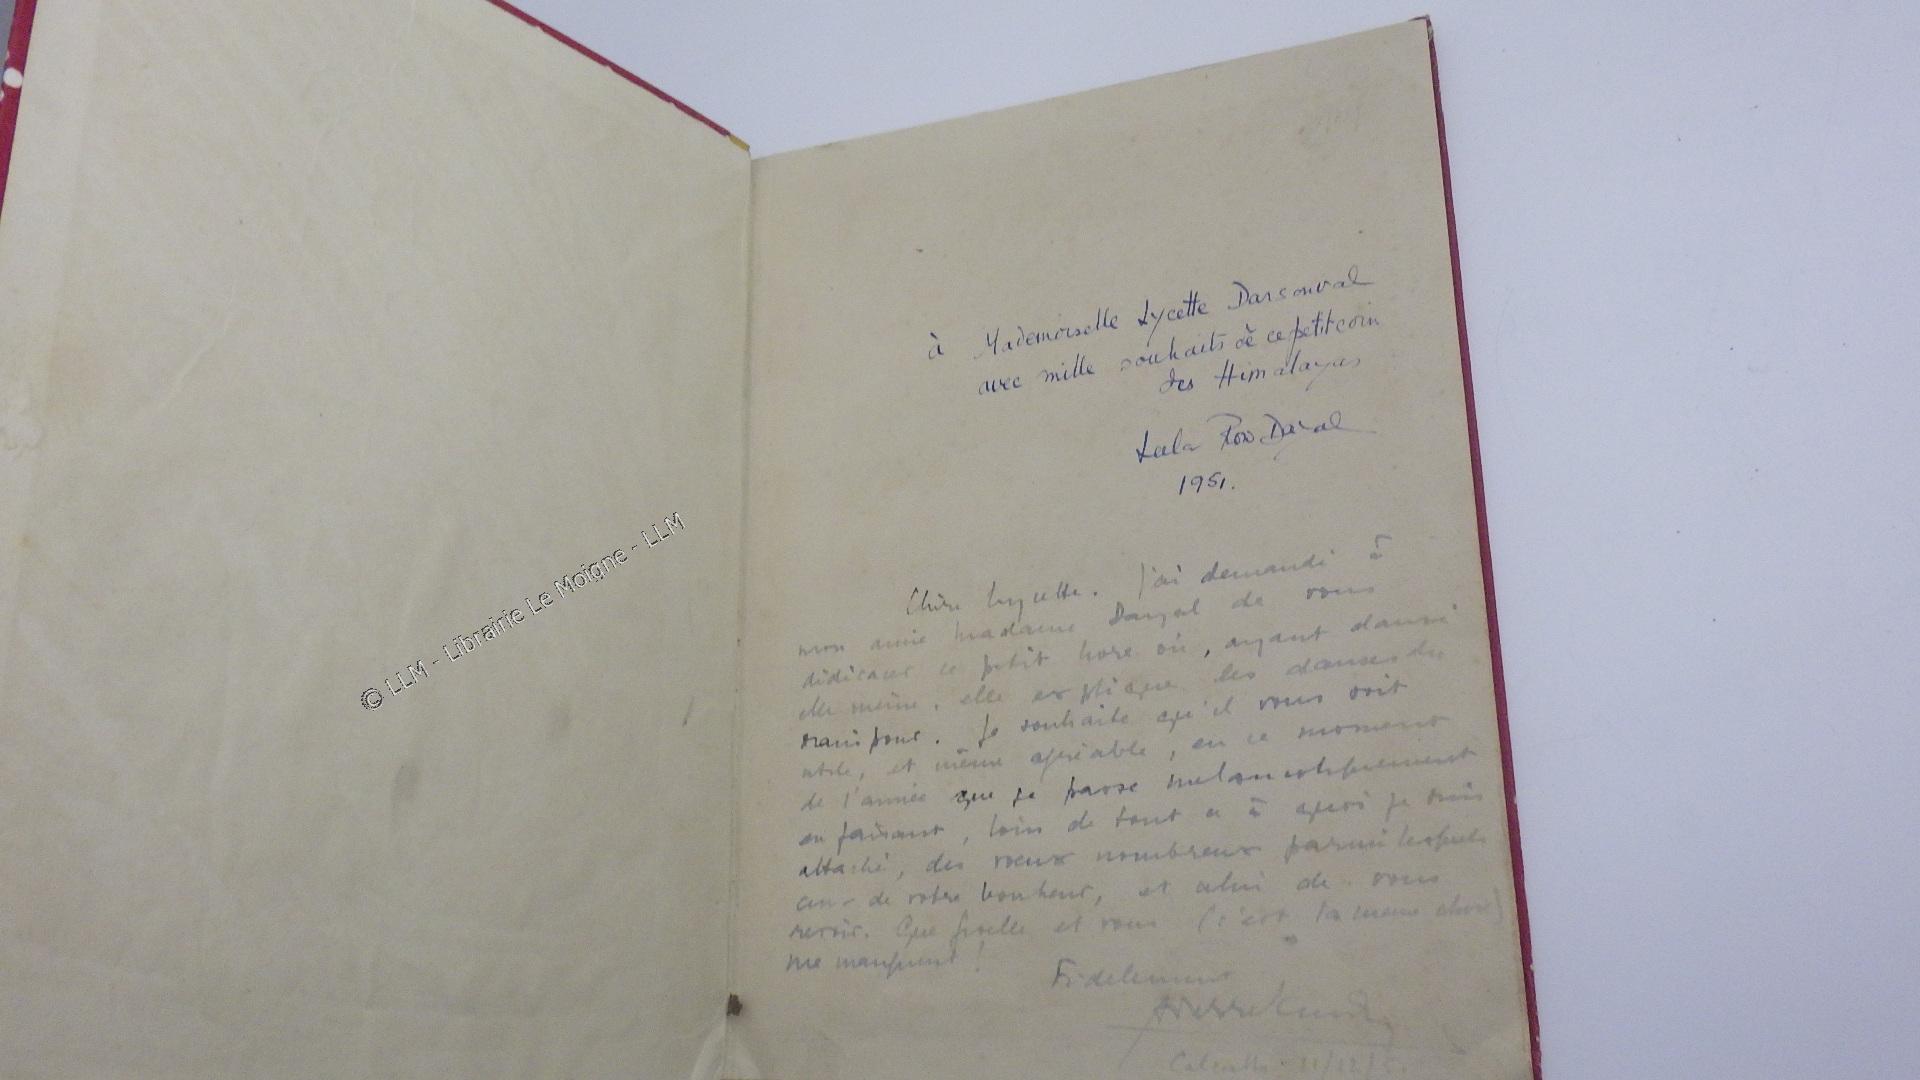 à Mademoiselle Lycette Darsonval
avec mille souhaits de ce petit coin
des Himalayas
Leela Row Dayal
1951.
Chère Lycette. J'ai demandé à
mon amie Madame Dayal de vous
dédicacer ce petit livre où, ayant dansé
elle même, elle explique les danses du
Manipour. Je souhaite qu'il vous soit
utile, et même agréable, en ce moment
de l'année que je passe mélancoliquement
en faisant, loin de tout ce à quoi je suis
attaché, des voeux nombreux parmi lesquels
ceux de votre bonheur, et celui de vous
revoir. Que Giselle et vous (c'est la même chose)
me manquent !
Fidèlement
Pierre
Calcutta 11/12/5
© LLM - Librairie Le Moigne - LLM